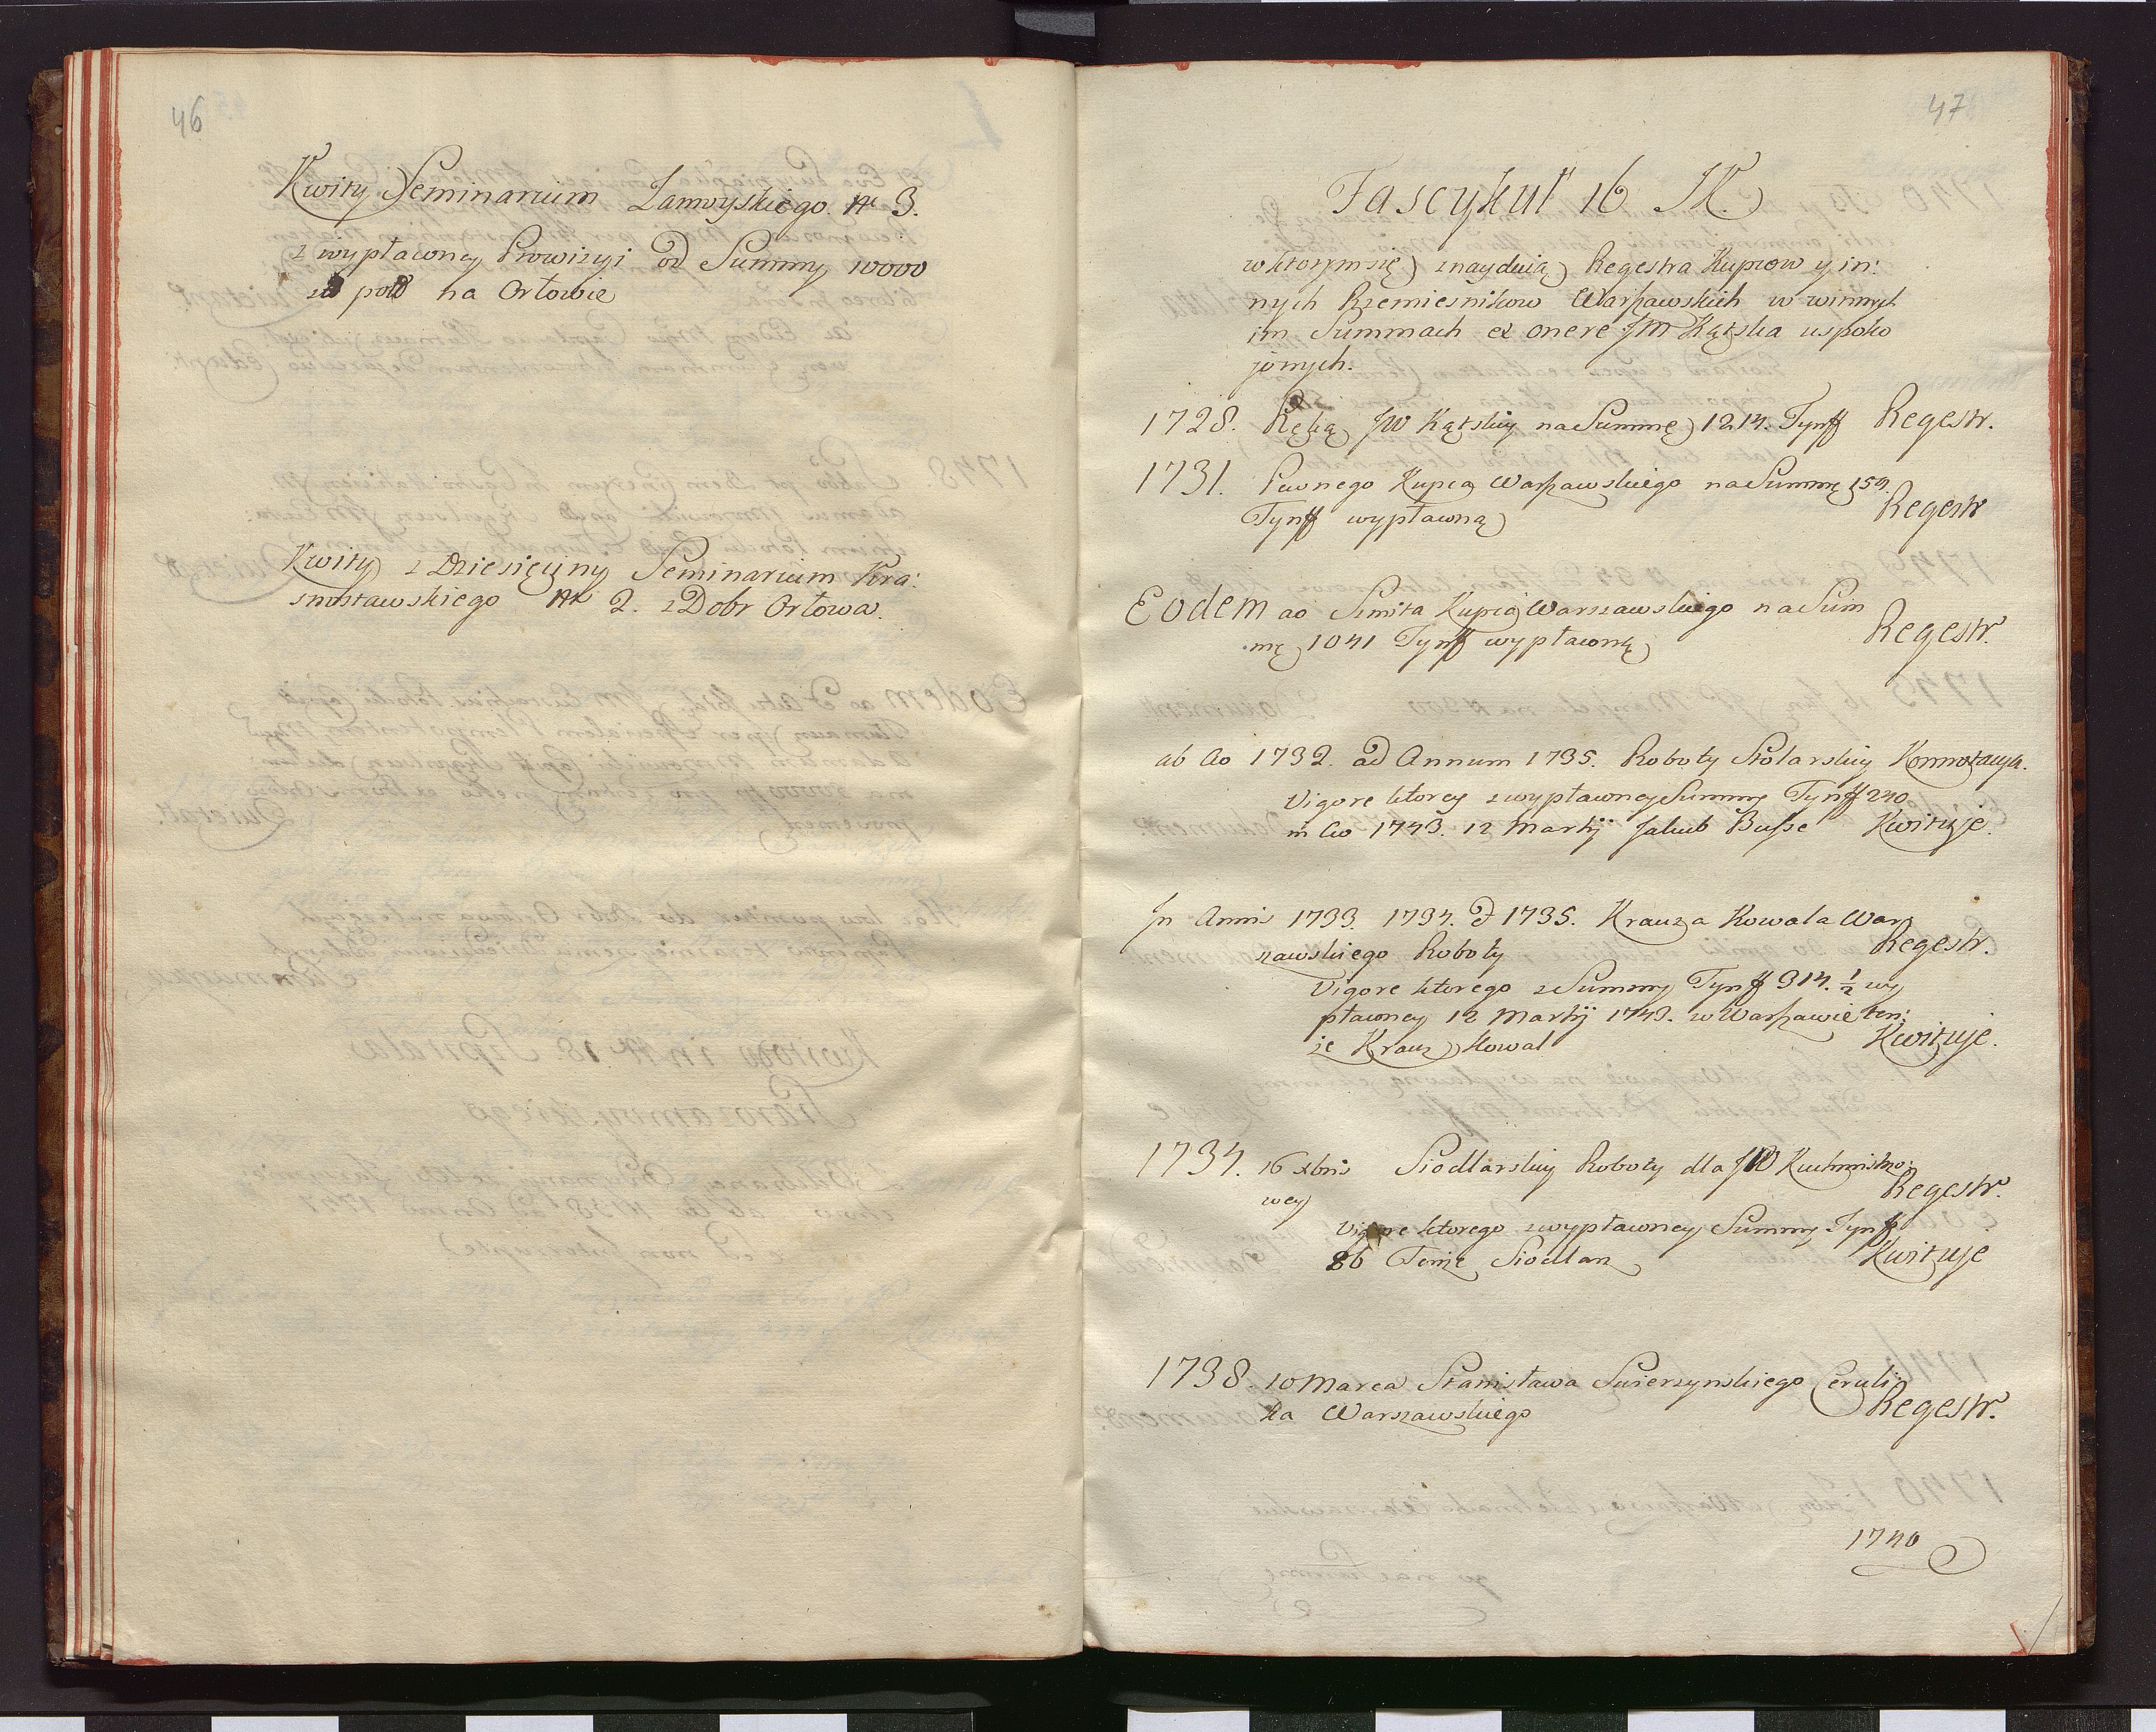 46
Kwity Seminarium Zamoyskiego N 3.
z wypłaconey Prowizyi od Summy 10000
zł pol na Orłowie
Kwity z Dziesięciny Seminarium Kra:
snostawskiego N 2. z Dobr Orłowa.
47
Fascykuł 16
w ktorym się znayduią Regestra Kupcow y in:
nych Rzemiesnikow Warszawskich w winnych
im Summach ex onere JM Kątska uspoko
jonych.
1728. Ręką JW Kątskiy na Summę 1214. Tynff Regestr.
1731. Pewnego Kupca Warszawskiego na Summę 154.
Tynff wypłaconą Regestr
Eodem ao Smita Kupca Warszawskiego na Sum
mę 1041 Tynff wypłaconą Regestr.
ab Ao 1732. ad Annum 1735. Roboty Stolarskiy Konnotacya.
Vigore ktorey z wypłaconey Summy Tynff 240
in Ao 1743. 12 Martij Jakub Busse Kwituje.
Jn Annis 1733. 1734. et 1735. Krauza Kowala War
szawskiego Roboty Regestr.
Vigore ktorego z Summy Tynff 314. 1/2 wy
płaconey 12 Martij 1743. w Warszawie ten:
że Krauz Kowal Kwituje.
1734. 16 xbris Siodlarskiy Roboty dla JW Kuchmistrzo:
wey Regestr.
Vigore ktorego z wypłaconey Summy Tynff
86 Tenże Siodlarz Kwituje
1738. 10 Marca Stanisława Swierzynskiego Ceruli:
ka Warszawskiego Regestr.
1740